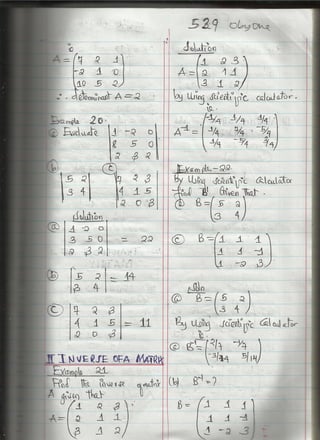 529
A = ( 7 2 1
-2 1 0
10 5 2 )
∴ determinant A = 2
Example 20.
(a) Evaluate | 1 -2 0
8 5 0
2 3 2 |
(b) | 5 2
3 4 |
(c) | 7 2 3
4 1 5
2 0 3 |
Solution
(a) | 1 2 0
3 5 0
2 3 2 | = 22
(b) | 5 2
3 4 | = 14
(c) | 7 2 3
4 1 5
2 0 3 | = 11
II INVERSE OF A MATRIX
Example 21
Find the inverse of matrix
A given that
A = ( 1 2 3
2 1 1
3 1 2 )
Solution
A = ( 1 2 3
2 1 1
3 1 2 )
by Using Scientific calculator.
A⁻¹ = ( -1/4 -1/4 1/4
1/4 -5/4
1/4 -5/4 3/4 )
Example - 22
By Using Scientific Calculator
find B⁻¹ Given That.
B = ( 5 2
3 4 )
(c) B = ( 1 1 1
1 1 -1
1 -2 3 )
Soln
(a) B = ( 5 2
3 4 )
By Using Scientific Calculator
(a) B⁻¹ = ( 2/7 -1/7
-3/14 5/14 )
(b) B⁻¹ = ?
B = ( 1 1 1
1 1 -1
1 -2 3 )